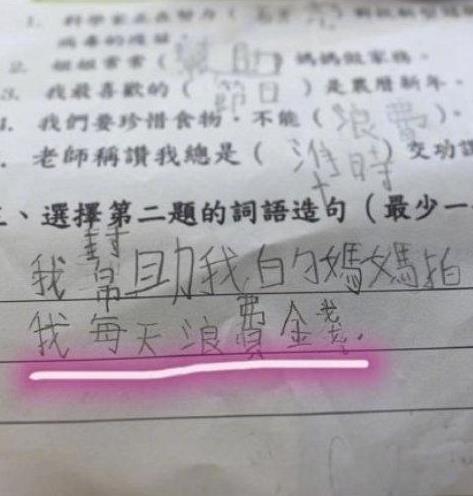 1. 科學家正在努力（
病毒的疫苗。
2. 姐姐常常（幫助）媽媽做家務。
3. 我最喜歡的（節日）是農曆新年。
4. 我們要珍惜食物，不能（浪費）。
. 老師稱讚我總是（準時）交功
三、選擇第二題的詞語造句（最少一
我幫助我的媽媽拍
我每天浪費金錢.